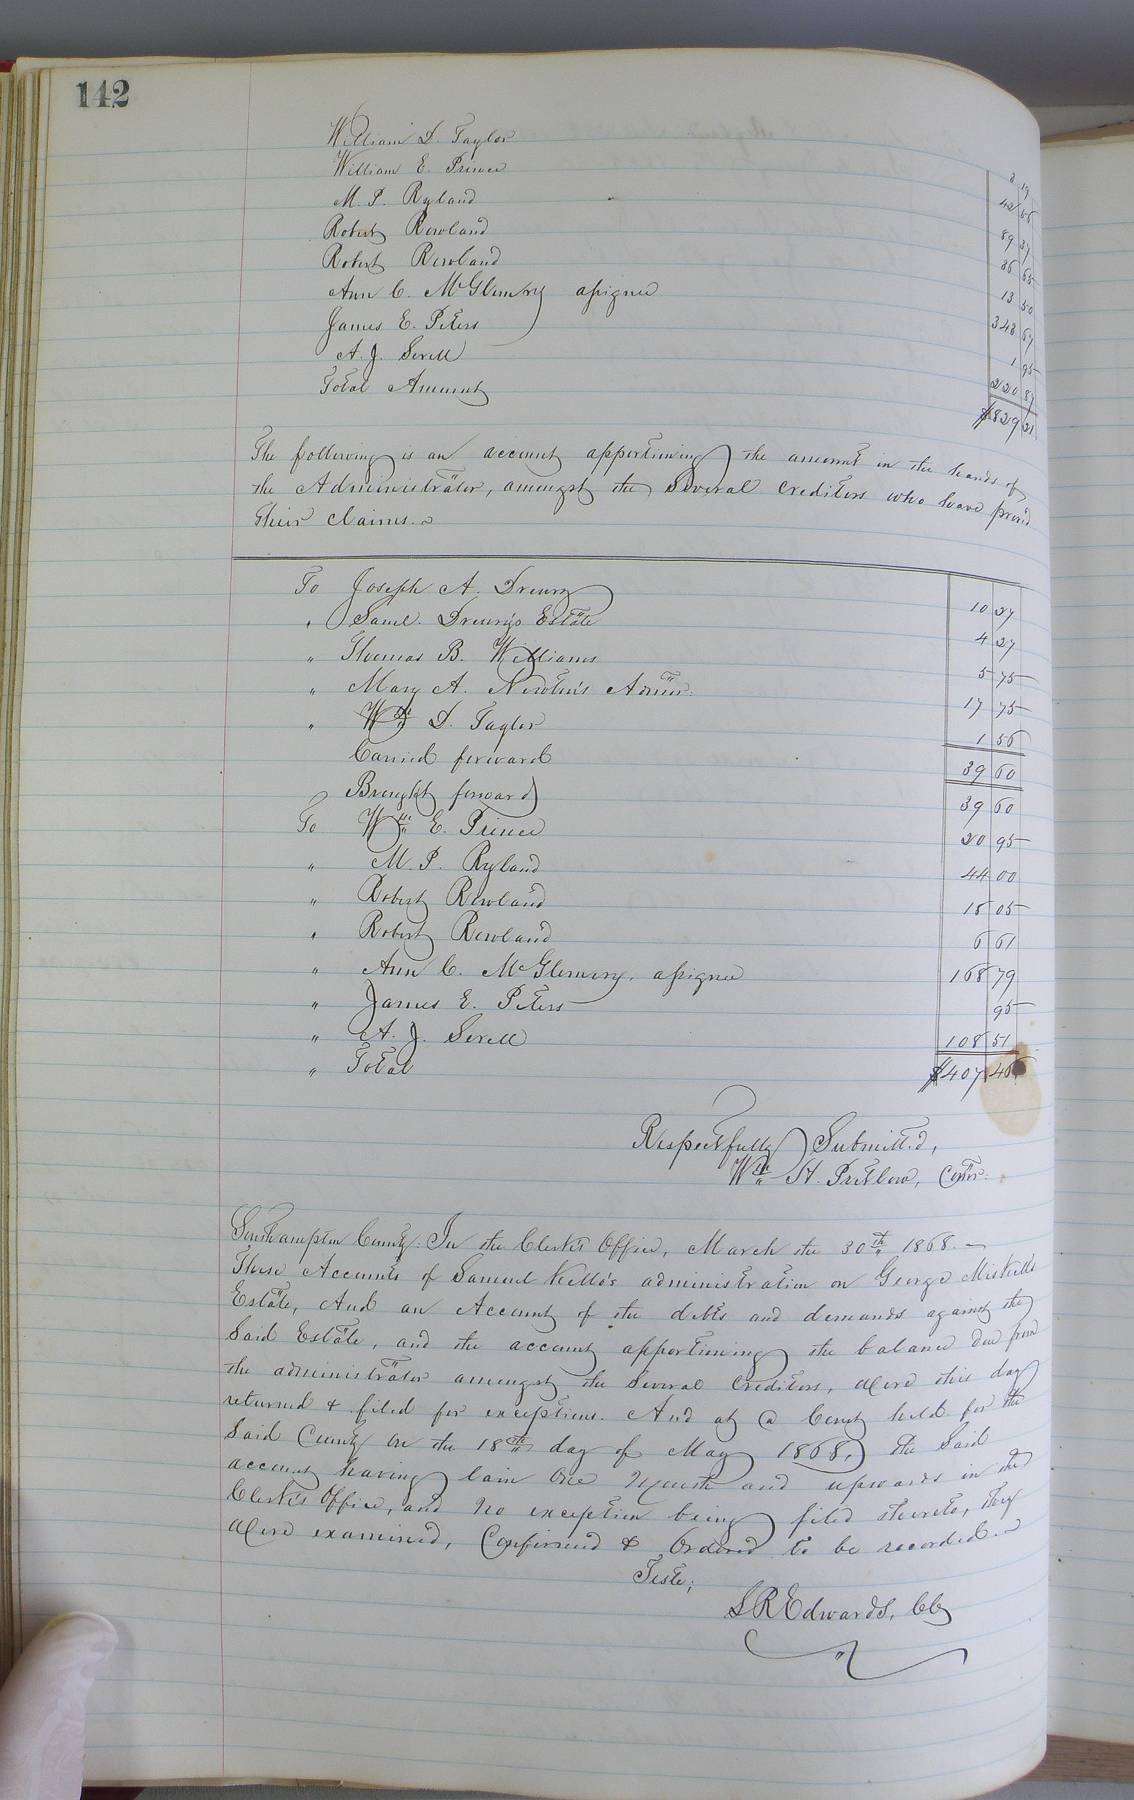 142
William D. Taylor 3 19
William E. Prince 42 56
M. P. Ryland 89 37
Robert Rowland 36 65
Robert Rowland 13 50
Ann C. McGlemry assignee 343 67
James E. Peters 1 95
A. J. Sorell 220 89
Total Amount $829 21
The following is an account apportioning the amount in the hands of
the Administrator, amongst the several creditors who have proved
their claims.
To Joseph A. Drewry 10 27
" Saml. Drewry's Estate 4 27
" Thomas B. Williams 5 75
" Mary A. Newton's Admr: 17 75
" Wm D. Taylor 1 56
Carried forward 39 60
Brought forward 39 60
To Wm E. Prince 20 95
" M. P. Ryland 44 00
" Robert Rowland 18 05
" Robert Rowland 6 61
" Ann C. McGlemry, assignee 168 79
" James E. Peters 95
" A. J. Sorell 108 51
" Total $407 46
Respectfully Submitted,
Wm H. Pretlow, Comr:
Southampton County: In the Clerk's Office, March the 30th 1868.
These Accounts of Samuel Kello's administration on George
Estate, And an Account of the debts and demands against the
Said Estate, and the account apportioning the balance due from
the administrator amongst the several Creditors, were this day
returned & filed for exceptions. And at a Court held for the
Said County on the 18th day of May 1868, the Said
account having lain one Month and upwards in the
Clerk's Office, and no exception being filed thereto, they
were examined, Confirmed & Ordered to be recorded.
Teste;
L R Edwards, CC